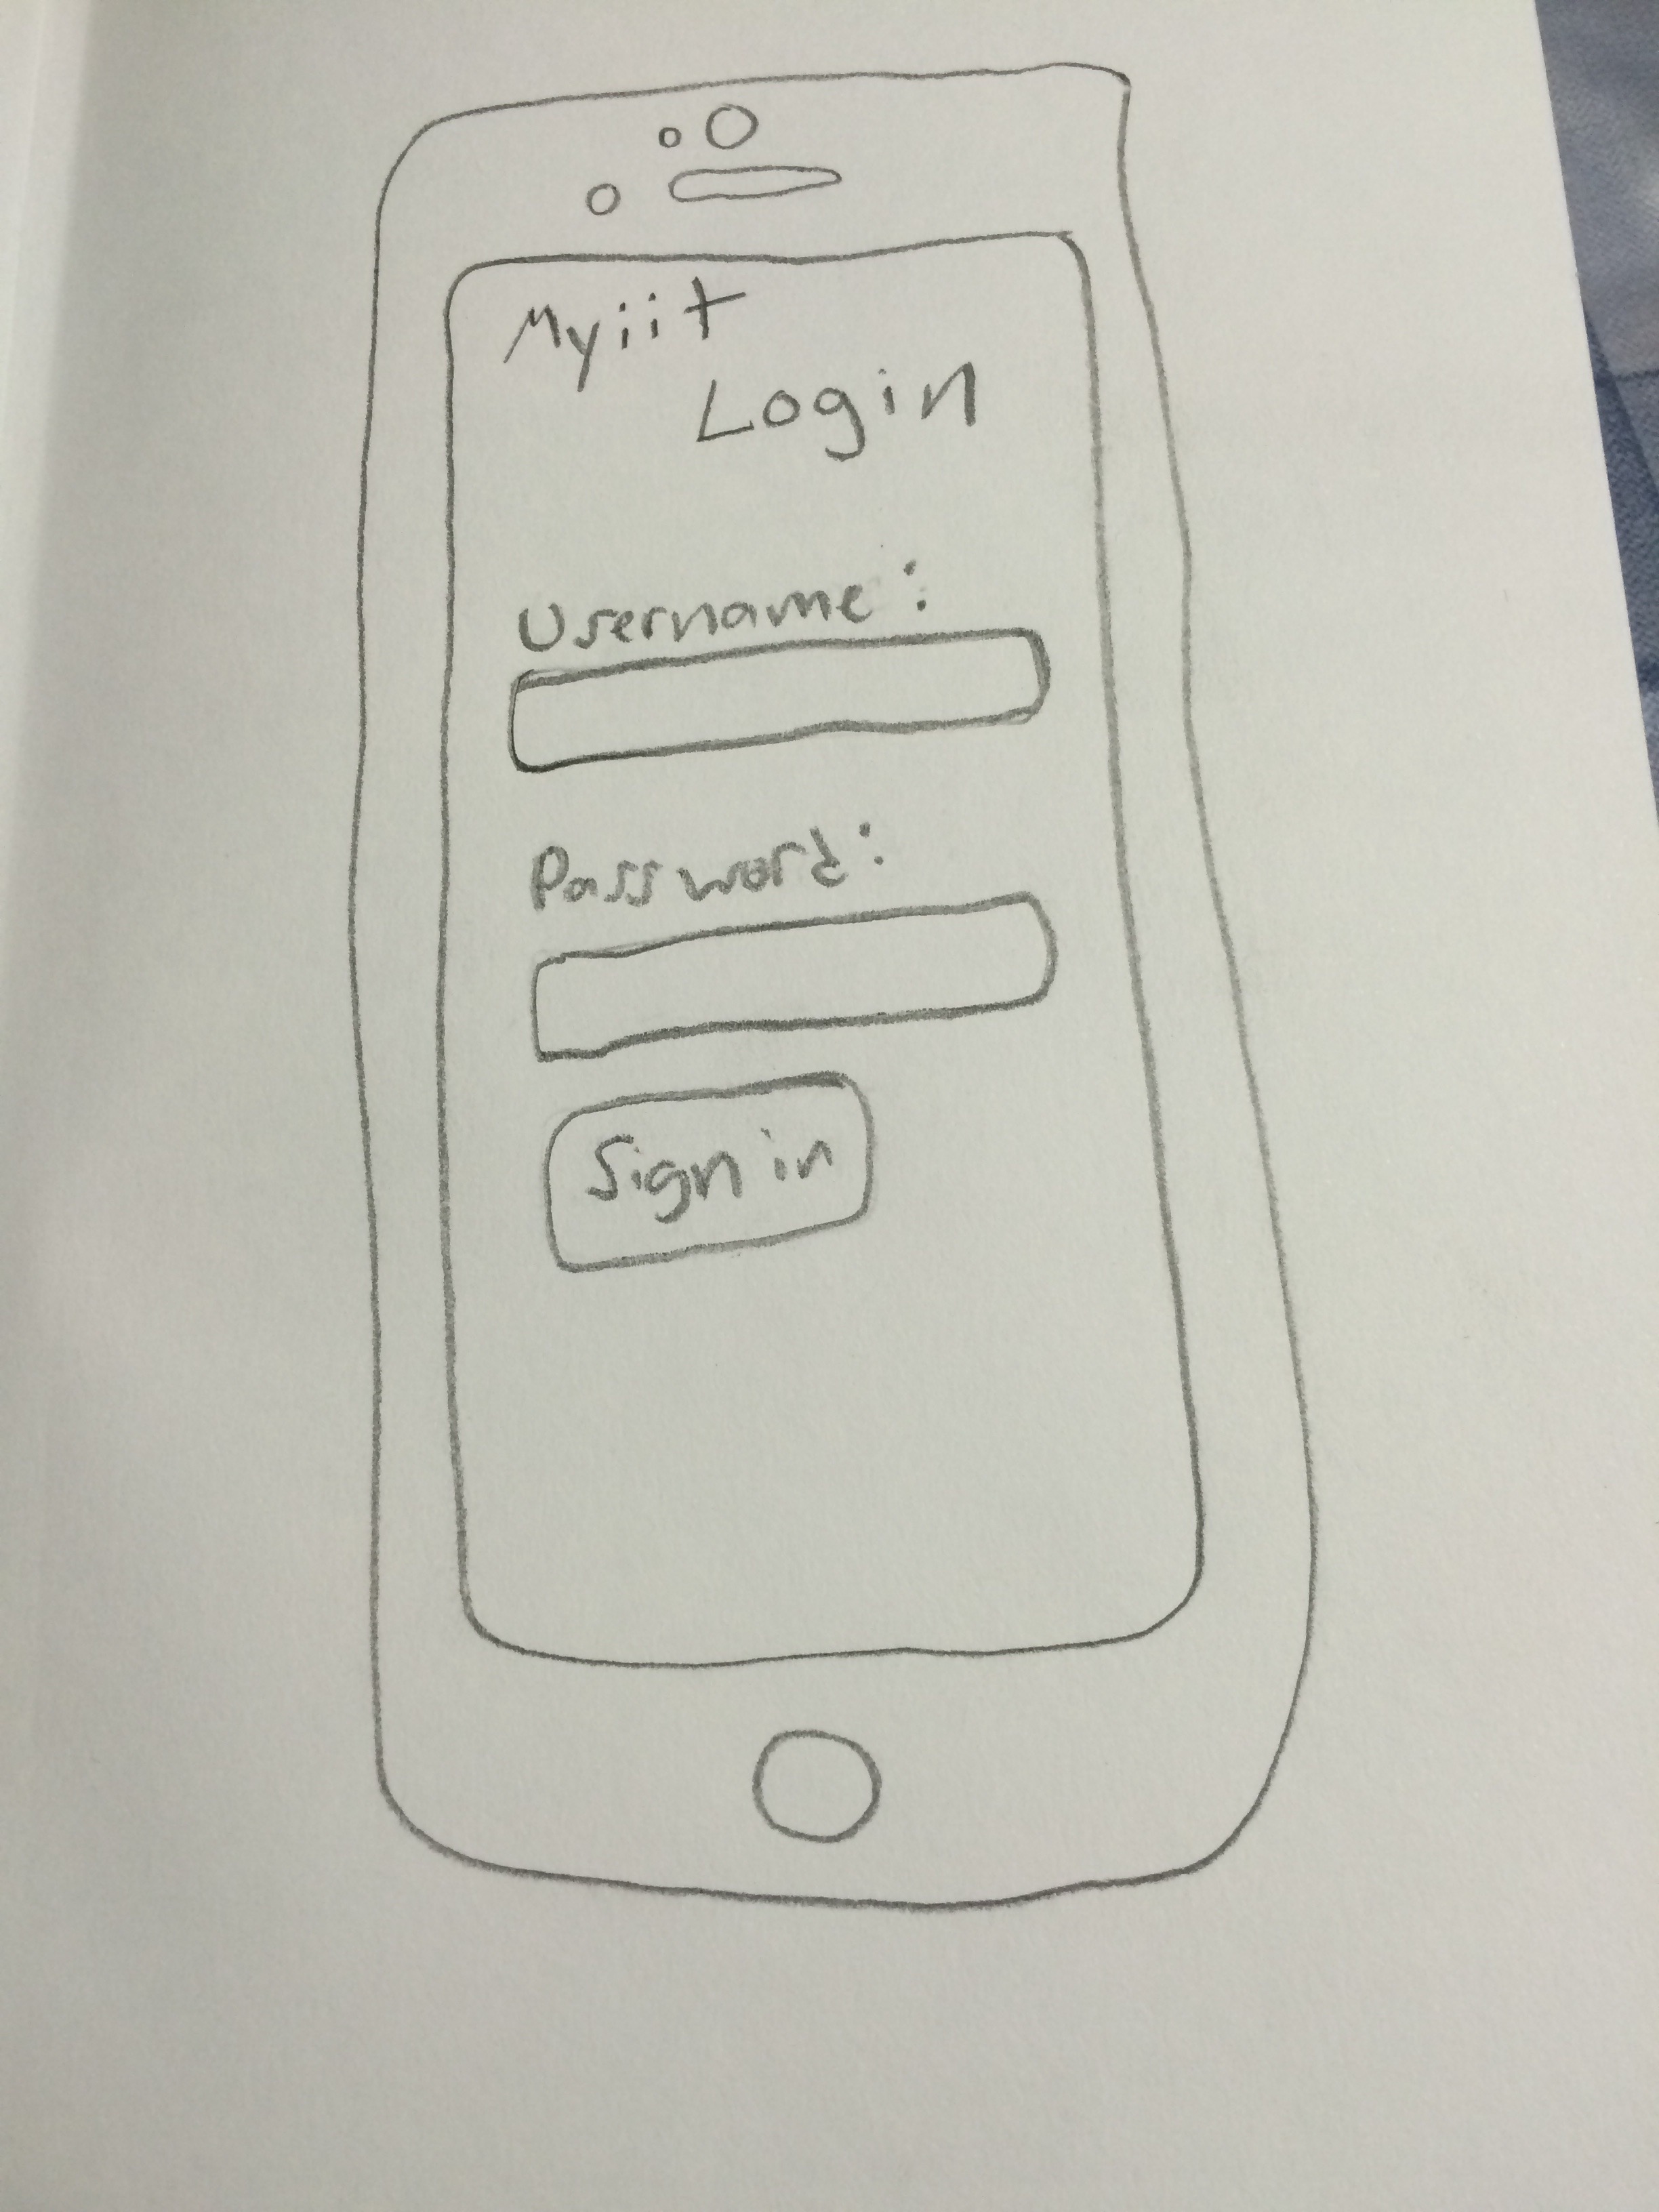 Myiit
Login
Username:
Password:
Sign in